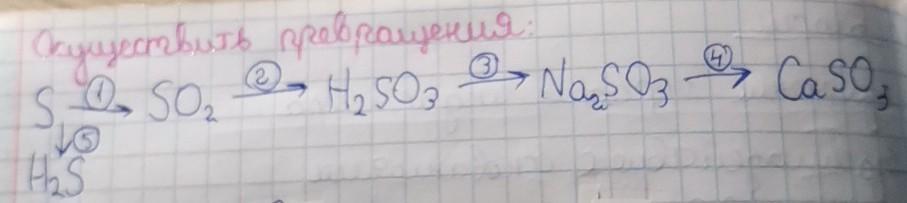 Осуществить превращения:
S —①→ SO₂ —②→ H₂SO₃ —③→ Na₂SO₃ —④→ CaSO₃
↓⑤
H₂S